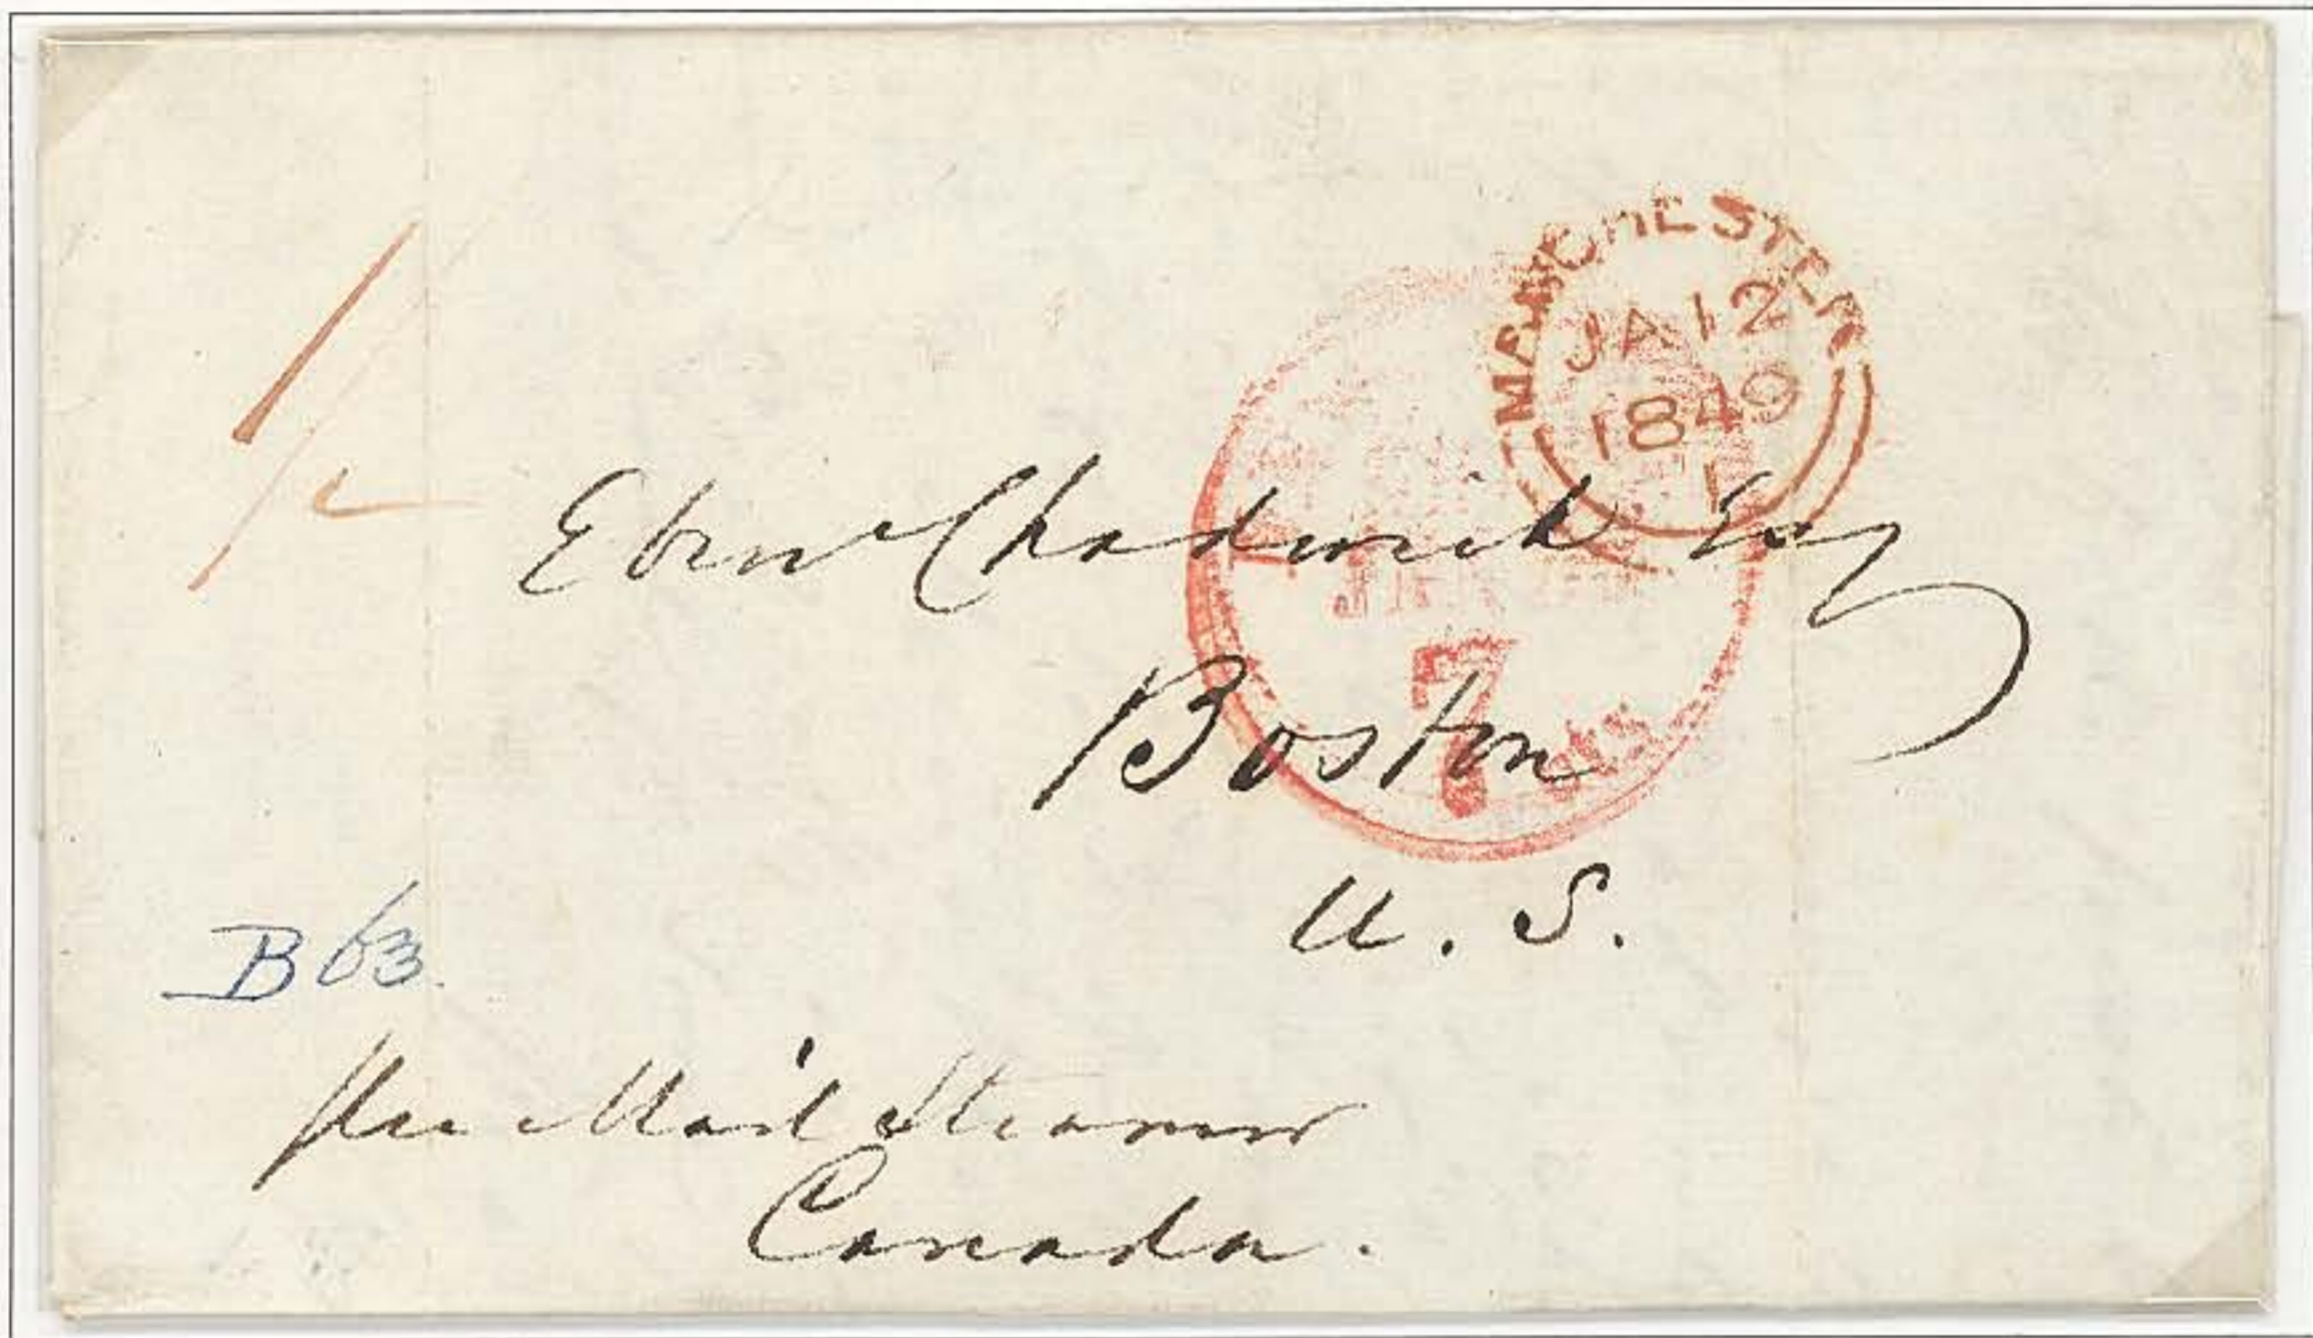 MANCHESTER
JA 12
1849
1
1/-
Ebenr Chadwick Esq
7
Boston
cts
U. S.
B 63.
Per Mail Steamer
Canada.